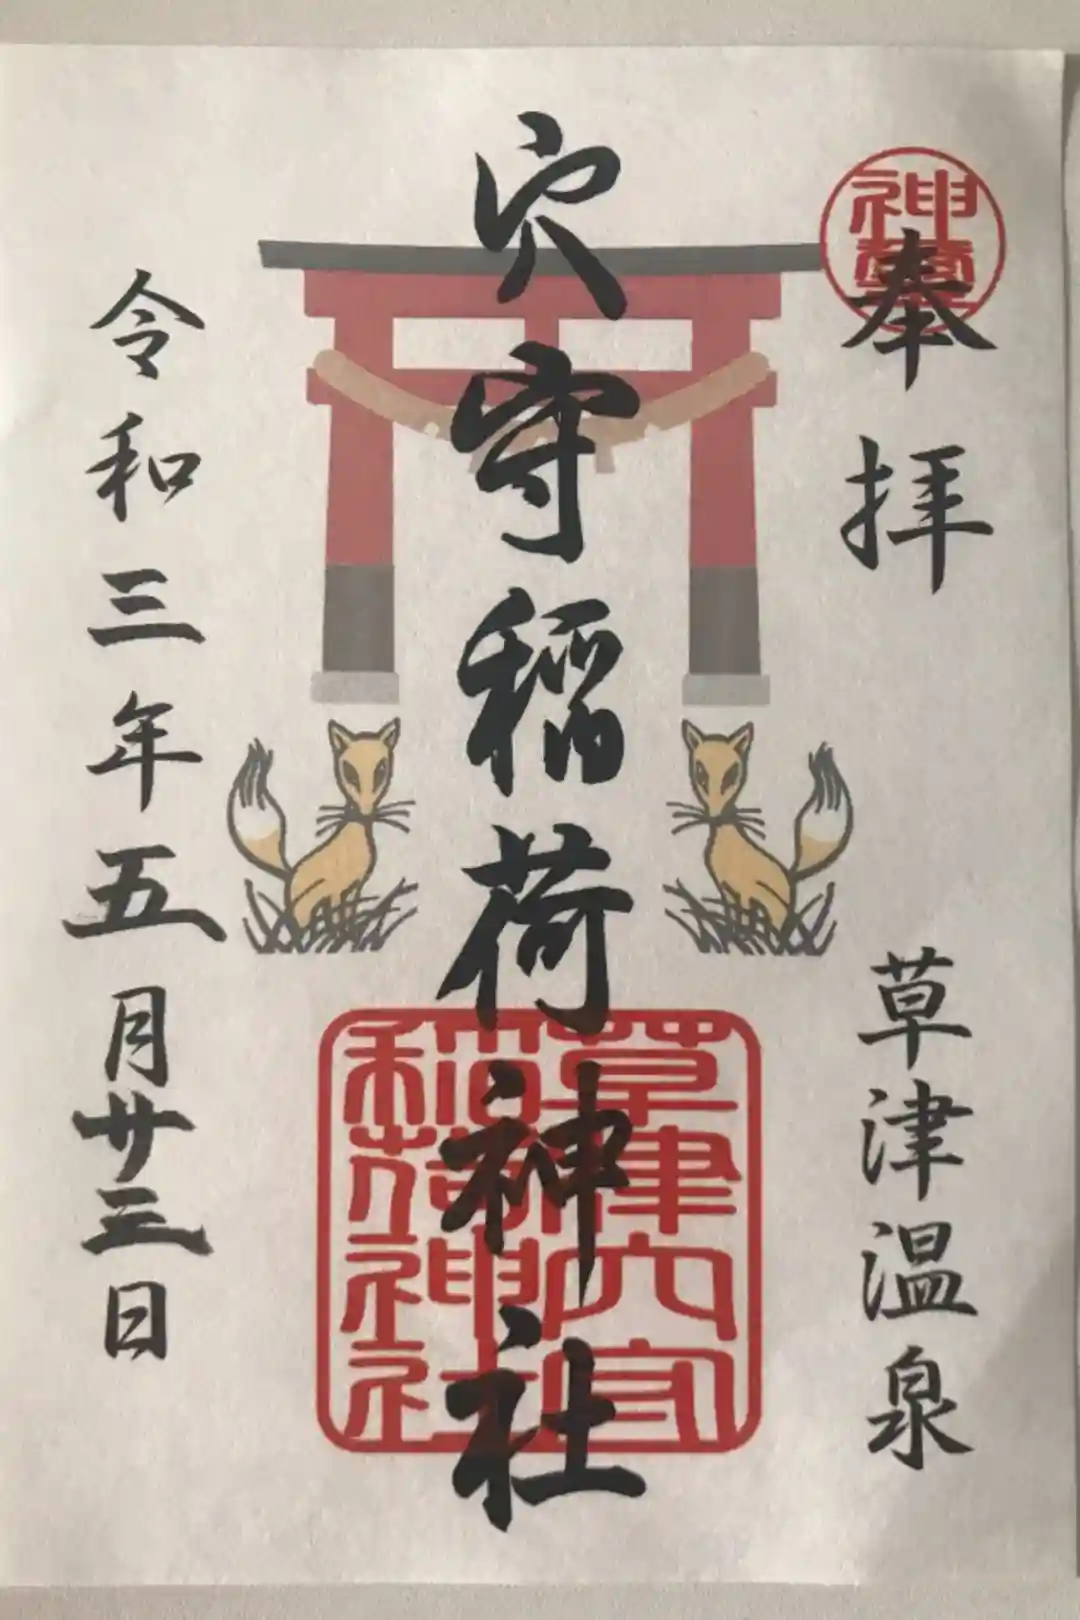 奉拝
草津温泉
穴守稲荷神社
令和三年五月廿三日
神璽
草津穴守
稲荷神社